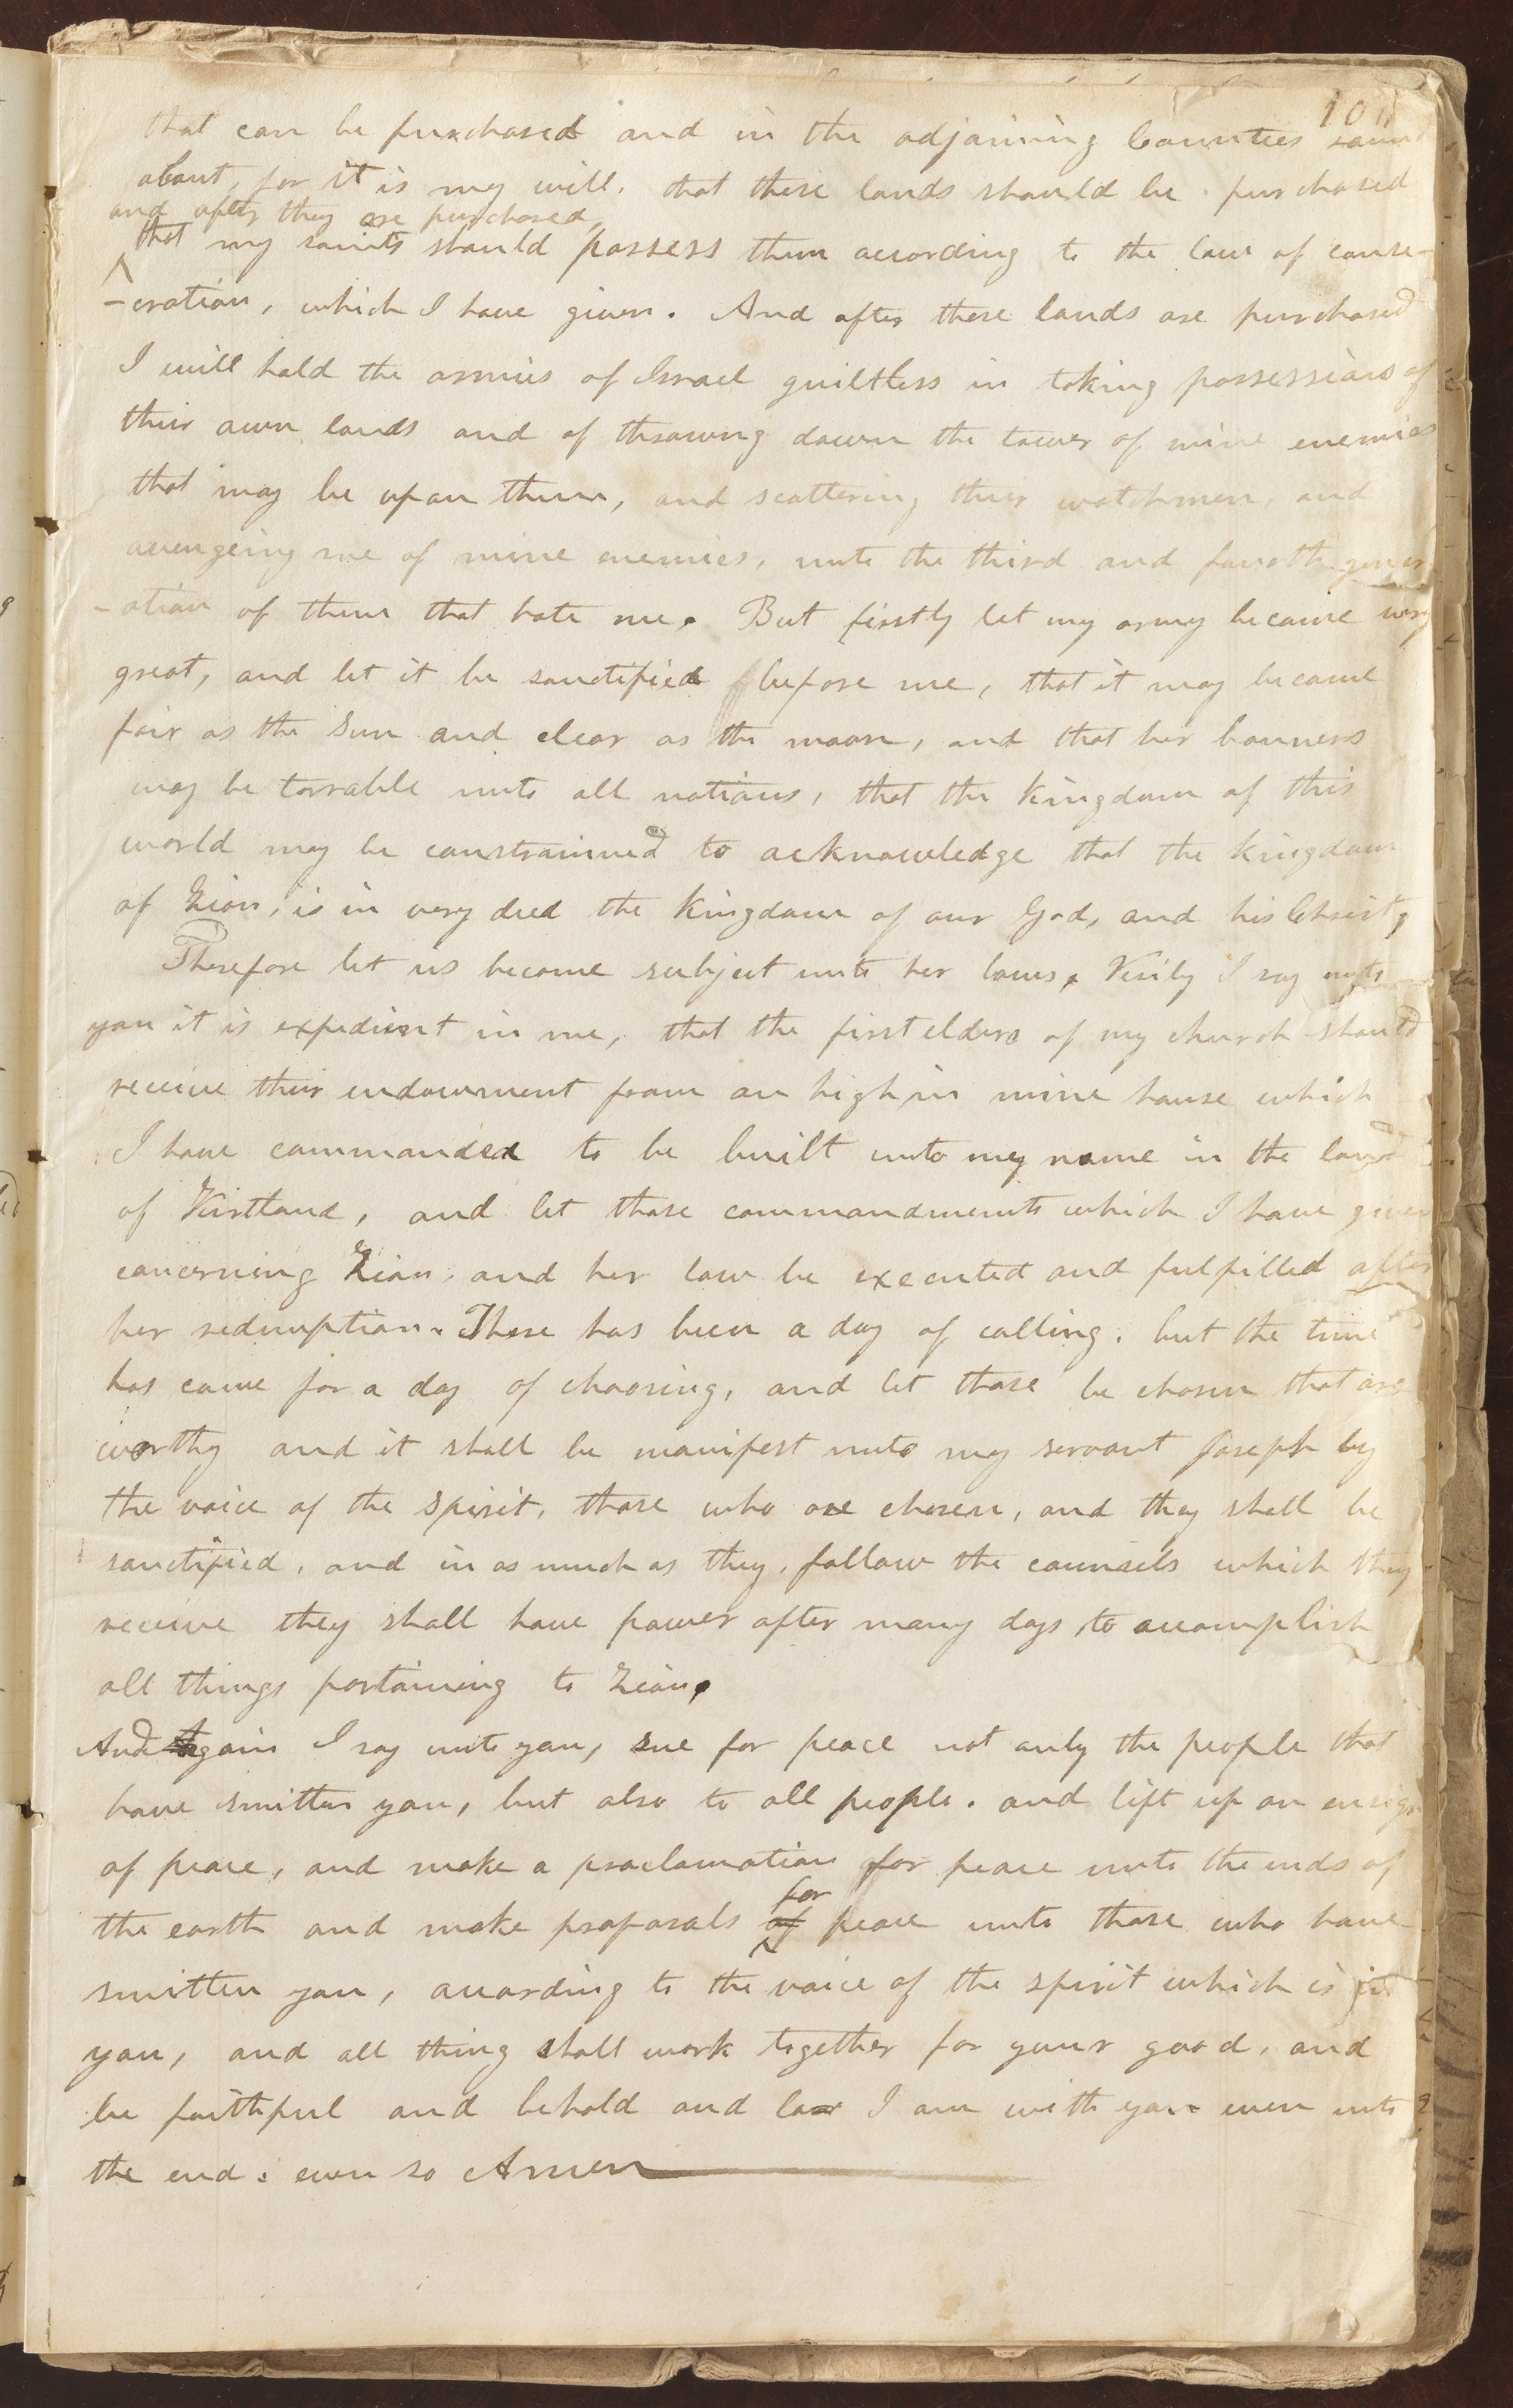 that can be purchased and in the adjoining Counties roun
about, for it is my will, that these lands should be purchased
and after they are purchased,
that my saints should possess them according to the law of conse-
-cration, which I have given. And after these lands are purchased
I will hold the armies of Israel guiltless in taking possessions of
their own lands and of throwing down the tower of mine enemies
that may be upon them, and scattering their watchmen, and
avengeing me of mine enemies, unto the third and fourth gener
-ation of them that hate me. But firstly let my army become very
great, and let it be sanctified before me, that it may become
fair as the sun and clear as the moon, and that her banners
may be terrable unto all nations, that the kingdom of this
world may be constrainned to acknowledge that the kingdom
of Zion, is in very deed the kingdom of our God, and his Christ,
Therefore let us become subject unto her laws. Verily I say unto
you it is expedient in me, that the first elders of my church should
receive their endowment from on high in mine house which
I have commanded to be built unto my name in the land
of Kirtland, and let those commandments which I have given
concerning Zion, and her law be executed and fulfilled after
her redemption. There has been a day of calling, but the time
has come for a day of choosing, and let those be chosen that are
worthy and it shall be manifest unto my servant Joseph by
the voice of the spirit, those who are chosen, and they shall be
sanctified, and in as much as they, follow the counsels which they
receive they shall have power after many days to accomplish
all things pertaining to Zion.
And Again I say unto you, sue for peace not only the people that
have smitten you, but also to all people. and lift up an ensign
of peace, and make a proclamation for peace unto the ends of
for
the earth and make proposals of peace unto those who have
smitten you, according to the voice of the spirit which is in
you, and all thing shall work together for your good, and
be faithful and behold and lo I am with you even unto
the end. even so Amen